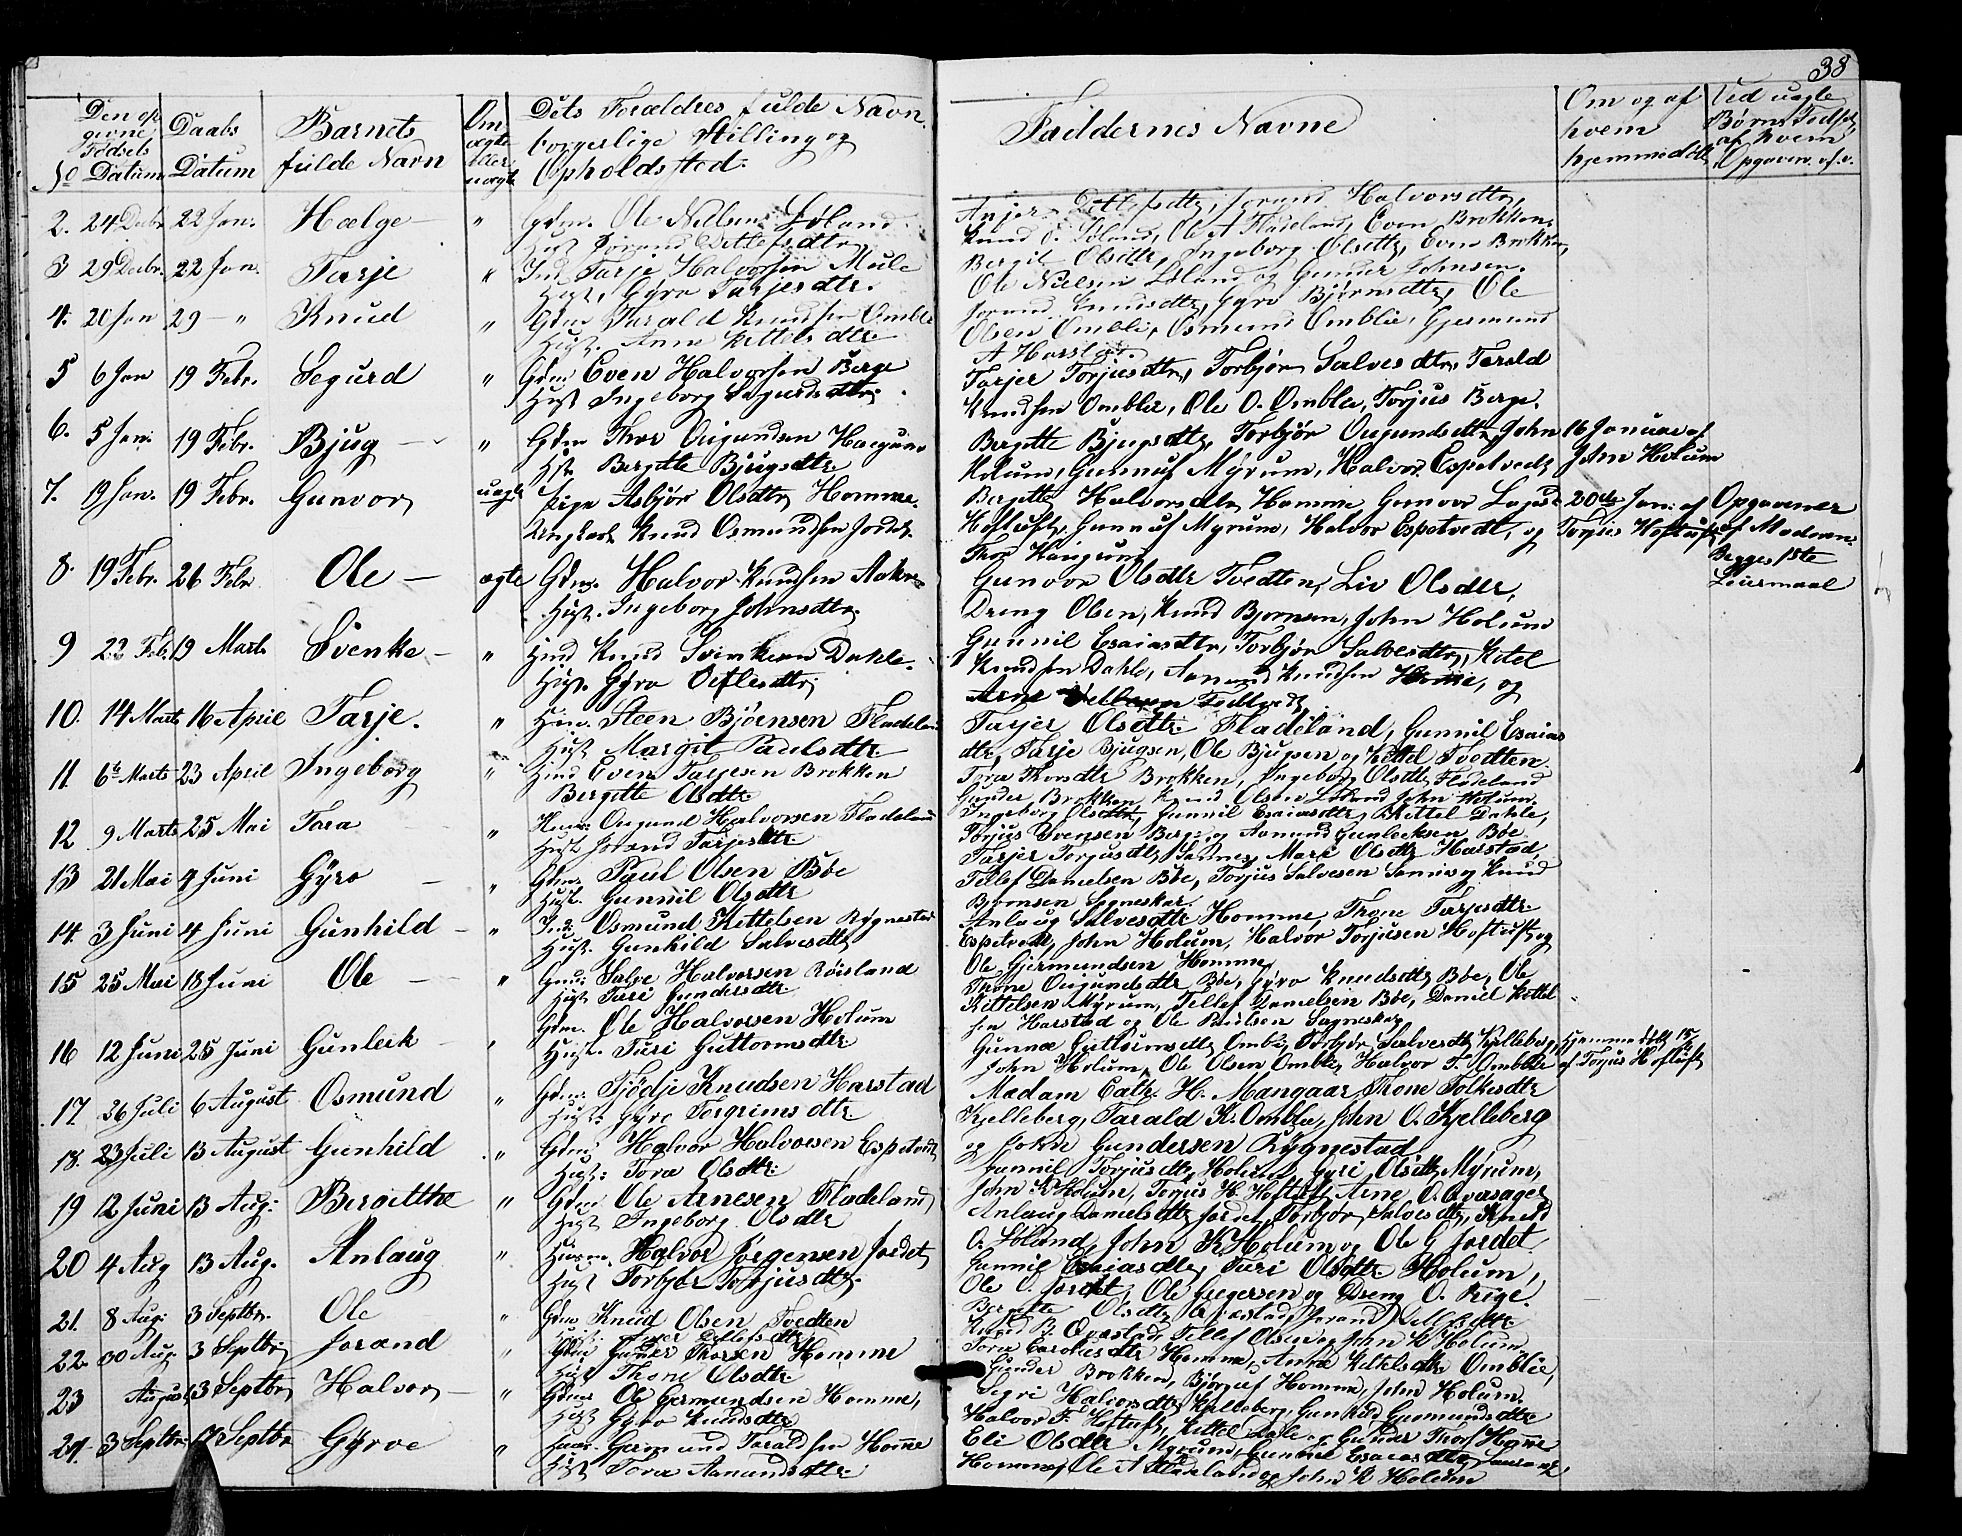 38
Den op
givne
Fødsels
No Datum
Daabs
Datum
Barnets
fulde Navn
Om
ægte
eller
uægte
Dets Forældres fulde Navn
borgerlige Stilling og
Opholdsted.
Faddernes Navne
Om og af
hvem
hjemmedøbt
Ved uægte
Børns Fødsel
af hvem
Opgaven
2. 24 Decbr 22 Jan. Hælge " Gdm. Ole Nielsen Løland
Hust Jorand Detlefsdtr
Anjer Detlefsdtr, Jorand Halvorsdtr,
Knud O. Løland, Ole A Fladeland, Even Brokken.
3 29 Decbr. 22 Jan. Tarje " Ind Tarje Halvorsen Mule
Hust. Gyro Tarjesdtr.
Bergit Olsdtr, Ingeborg Olsdtr, Even Brokken,
Ole Nielsen Løland og Gunder Johnsen.
4. 20 Jan 29 - " Knud " Gdm Tarald Knudsen Omblie
Hust. Anne Kittelsdtr
Jorand Knudsdtr, Gyro Bjørnsdtr, Ole
Olsen Omblie, Osmund Omblie, Gjermund
A Harstad.
5 6 Jan 19 Febr. Segurd " Gdm Even Halvorsen Berge
Hust Ingeborg Segurdsdtr.
Tarjer Torjusdtr, Torbjør Salvesdtr, Tarald
Knudsen Omblie, Ole O. Omblie, Torjus Berge.
6. 5 Jan. 19 Febr. Bjug " Gdm Thor Ougundsen
Hst. Bergitte Bjugsdtr.
Bergitte Bjugsdtr, Torbjør Ougundsdtr, John
Holum, Gunnuf Myrum, Halvor Espetvedt
16 Januar af
John Holum
7. 19 Jan. 19 Febr. Gunvor uægte Pige Asbjør Olsdtr Homme.
Ungkarl Knud Osmundsen Jordet.
Bergitte Halvorsdtr Homme Gunvor
Hoftuft, Gunnuf Myrum, Halvor Espetvedt, og
Thor
20de Jan. af
Torjus Hoftuft
Opgavener
af Moderen.
Begges 1ste
Leiermaal
8. 19 Febr. 26 Febr Ole ægte Gdm. Halvor Knudsen
Hust. Ingeborg Johnsdtr.
Gunvor Olsdtr Tvedten, Liv Olsdtr,
Dreng Olsen, Knud Bjørnsen, John Holum
9 22 Feb. 19 Marts Svenke " Knud Dahle.
Hust. Gyro
Gunnil Esaiasdtr, Torbjør Salvesdtr, Kitel
Knudsen Dahle, Aamund Knudsen Homme, og
10. 14 Marts 16 April Tarje. " Steen Bjørnsen Fladeland
Hust Margit
Tarjer Olsdtr Fladeland, Gunnil Esaias
dtr, Tarje Bjugsen, Ole Bjugsen og Kittel Tvedten.
11. 6te Marts 23 April Ingeborg " Even Tarjesen Brokken
Bergitte Olsdtr
Tora Thorsdtr Brokken, Ingeborg Olsdtr Fladeland
Gunder Brokken, Knud Olsen Løland John Holum.
12 9 Marts 25 Mai Tara " Ougund Halvorsen Fladeland
Hust Jorand Tarjesdtr
Ingeborg Olsdtr, Gunnil Esaiasdtr, Kittel Dahle,
Torjus Svensen Berge og Aamund Gunleeksen Bøe.
13 21 Mai 4 Juni Gyro " Gdm. Paul Olsen Bøe
Hust. Gunnil Olsdtr
Tarjer Torjusdtr Sannes, Mari Olsdtr Harstad,
Tellef Danielsen Bøe, Torjus Salvesen Sannes og Knud
Bjørnsen
14. 3 Juni 4 Juni Gunhild " Osmund Kittelsen Rygnestad
Hust. Gunhild Salvesdtr
Anlaug Salvesdtr Homme, Thone Tarjesdtr
Espetvedt, John Holum, Halvor Torjusen Hoftuft og
Ole Gjermundsen Homme.
15 25 Mai 18 Juni Ole " Gdm. Salve Halvorsen Røisland
Hust Turi Gundersdtr.
Thone Ougundsdtr Bøe, Gyro Knudsdtr Bøe, Ole
Kittelsen Myrum, Tellef Danielsen Bøe, Daniel Kittel
sen Harstad og Ole Paulsen
16 12 Juni 25 Juni Gunleik " Gdm. Ole Halvorsen Holum
Hust. Turi Guttormsdtr.
Gunne Guttormsdtr Omblie, Torbjør Salvesdtr Kjelleberg,
John Holum, Ole Olsen Omblie, Halvor T. Omblie
Hjemmedøbt 15/6
af Torjus Hoftuft
17. 26 Juli 6 August Osmund " Gdm. Fjodje Knudsen Harstad
Hust. Gyro Torgrimsdtr.
Madam Cath. H. Mangaar, Thone Folkesdtr
Kjelleberg, Tarald K. Omblie, John O. Kjelleberg
og John Gundersen Rygnestad.
18. 23 Juli 13 August Gunhild " Gdm. Halvor Halvorsen Espetvedt
Hust. Tora Olsdtr.
Gunnil Torjusdtr Holum, Gyri Olsdtr Myrum,
John K Holum, Torjus H. Hoftuft, Arne O.
19 12 Juni 13 Aug. Bergitthe " Gdm Ole Arnesen Fladeland
Hust Ingeborg Olsdtr
Anlaug Danielsdtr Jordet, Torbjør Salvesdtr, Knud
O. Løland, John K Holum og Ole G Jordet.
20 4 Aug 13 Aug. Anlaug " Halvor Jørgensen Jordet
Hust Torbjør Torjusdtr.
Gunnil Esaiasdtr, Turi Olsdtr Holum,
Ole O. Jordet, Ole Gregersen og Dreng O. Rige.
21. 8 Aug. 3 Septbr. Ole " Gdm Knud Olsen Tvedten
Hust. Anjer Detlefsdtr
Bergitte Olsdtr Qvæstad, Jorand Detlefsdtr
Knud B. Qvæstad, Tellef Olsen og John K Holum.
22. 30 Aug. 3 Septbr Jorand " Gdm Gunder Thorsen Homme
Hust Thone Olsdtr.
Tora Homme, Anne Kittelsdtr Omblie,
Gunder Brokken, Bjørguf Homme, John Holum.
23 August 3 Septbr Halvor " Gdm Ole Germundsen Homme,
Hust Gyro Knudsdtr
Segri Halvorsdtr Kjelleberg, Gunhild Germundsdtr
Halvor T. Hoftuft, Kittel Dale og Gunder Thors. Homme
24. 3 Septbr. 17 Septbr Gyrve " Germund Taraldsen Homme
Hust Tora Aamundsdtr.
Eli Olsdtr Myrum, Gunnil Esaiasdtr,
Homme, Ole A Fladeland og John K Holum